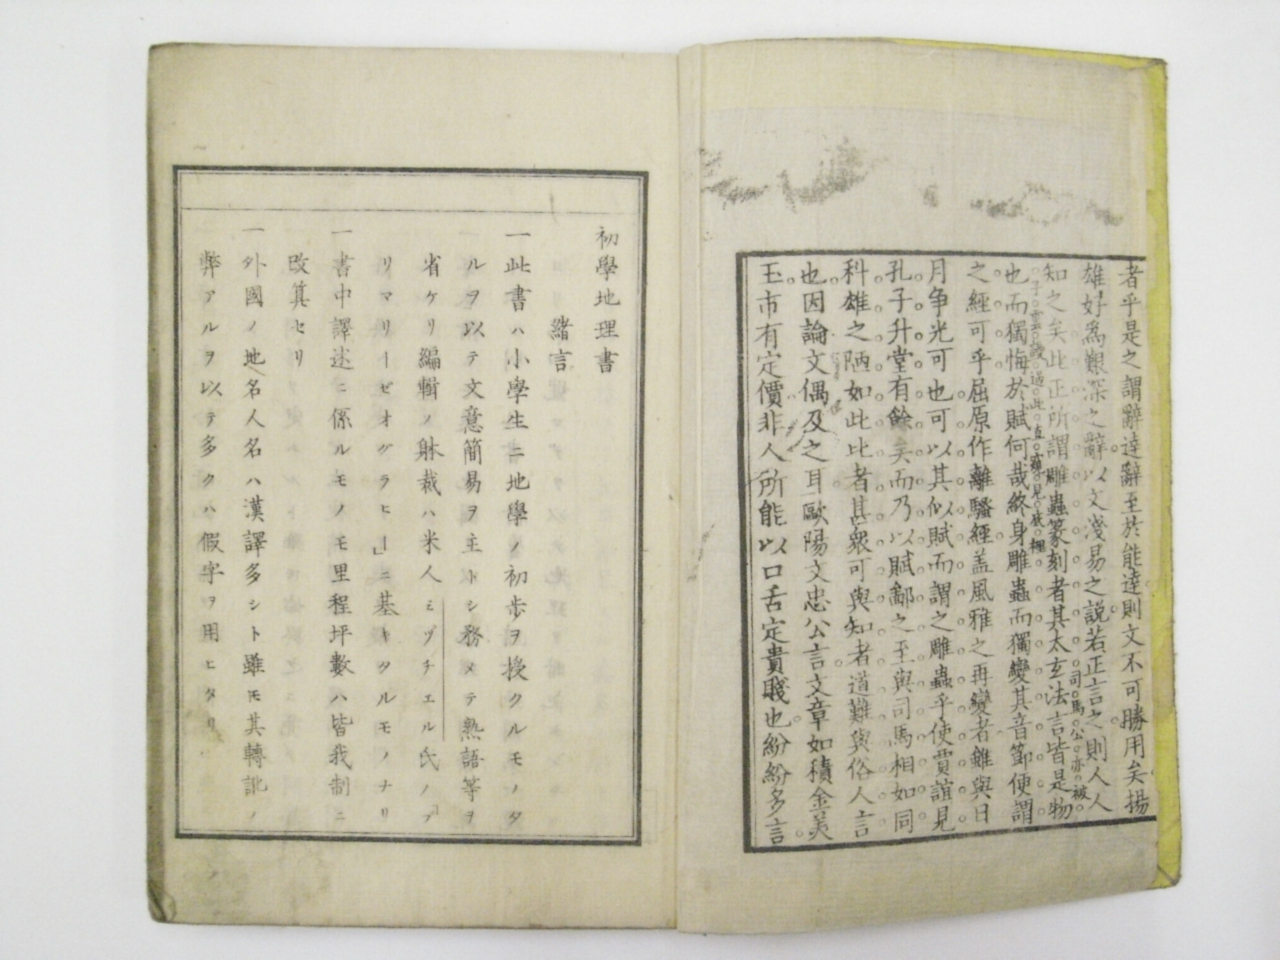 者乎是之謂辭達辭至於能達則文不可勝用矣揚
雄好為艱深之辭以文淺易之說若正言之則人人
知之矣此正所謂雕蟲篆刻者其太玄法言皆是物
子雲被此直露見底裡
司馬公亦被
也而獨悔於賦何哉終身雕蟲而獨變其音節便謂
之經可乎屈原作離騷經蓋風雅之再變者雖與日
月争光可也可以其似賦而謂之雕蟲乎使賈誼見
孔子升堂有餘矣而乃以賦鄙之至與司馬相如同
科雄之陋如此比者甚衆可與知者道難與俗人言
也因論文偶及之耳歐陽文忠公言文章如積金美
玉市有定價非人所能以口舌定貴賤也紛紛多言
初學地理書
緒言
一此書ハ小學生ニ地學ノ初歩ヲ授クルモノタ
ルヲ以テ文意簡易ヲ主トシ務メテ熟語等ヲ
省ケリ編輯ノ躰裁ハ米人ミッチエル氏ノ「プ
リマリーゼオグラヒー」ニ基キタルモノナリ
一書中譯述ニ係ルモノモ里程坪數ハ皆我制ニ
改算セリ
一外國ノ地名人名ハ漢譯多シト雖モ其轉訛ノ
弊アルヲ以テ多クハ假字ヲ用ヒタリ